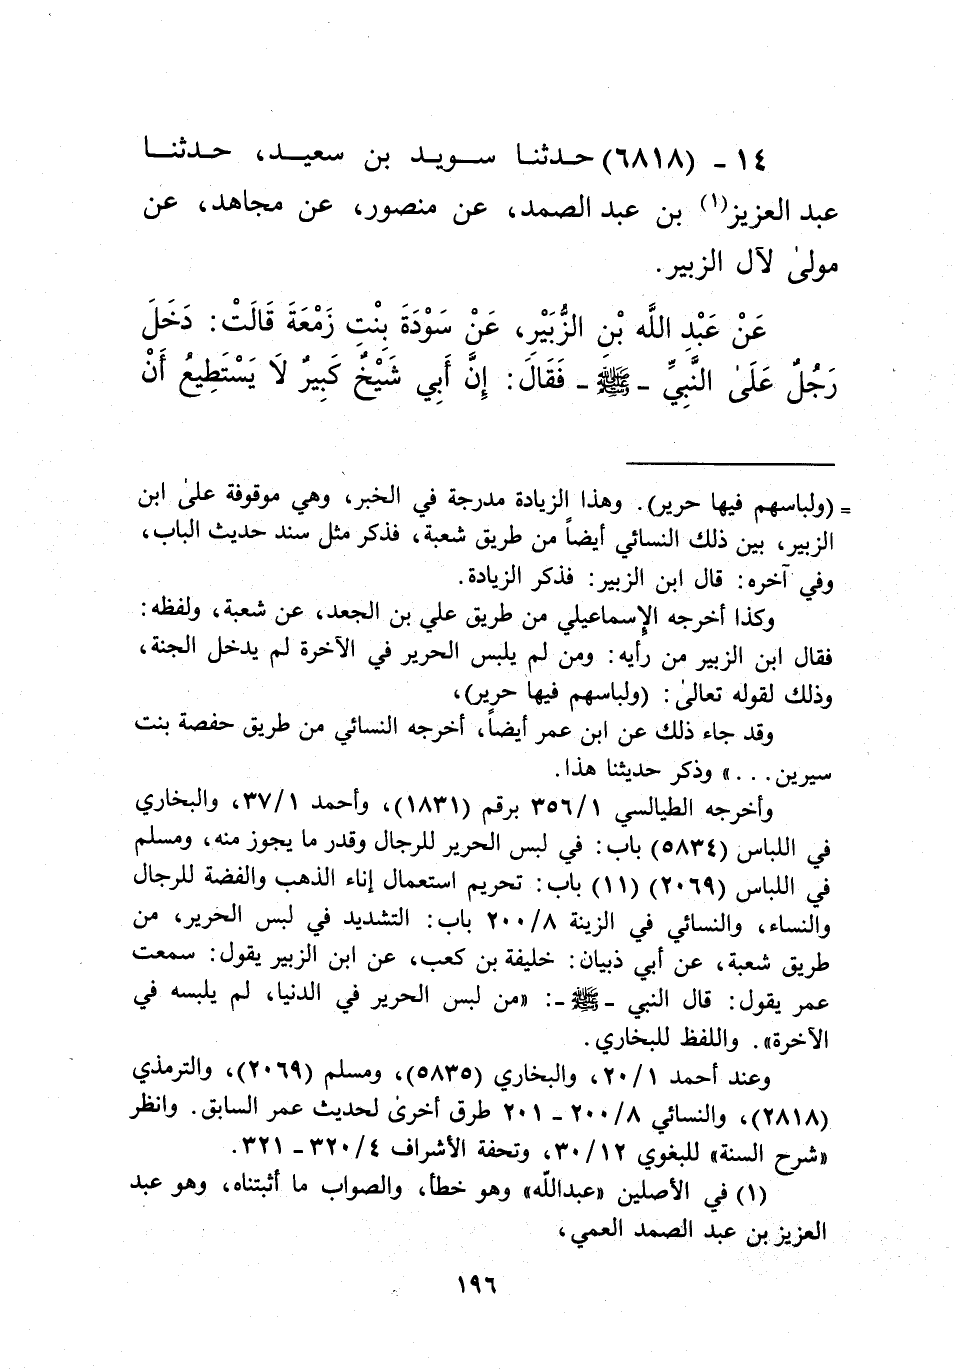 ١٤ - (٦٨١٨) حدثنا سويد بن سعيد، حدثنا
عبد العزيز(١) بن عبد الصمد، عن منصور، عن مجاهد، عن
مولىٰ لآل الزبير.
عَنْ عَبْدِ اللَّه بْنِ الزُّبَيْرِ، عَنْ سَوْدَةَ بِنْتِ زَمْعَةَ قَالَتْ: دَخَلَ
رَجُلٌ عَلَىٰ النَّبِيِّ - ﷺ - فَقَالَ: إِنَّ أَبِي شَيْخٌ كَبِيرٌ لَا يَسْتَطِيعُ أَنْ
= (ولباسهم فيها حرير). وهذا الزيادة مدرجة في الخبر، وهي موقوفة علىٰ ابن
الزبير، بين ذلك النسائي أيضاً من طريق شعبة، فذكر مثل سند حديث الباب،
وفي آخره: قال ابن الزبير: فذكر الزيادة.
وكذا أخرجه الإسماعيلي من طريق علي بن الجعد، عن شعبة، ولفظه:
فقال ابن الزبير من رأيه: ومن لم يلبس الحرير في الآخرة لم يدخل الجنة،
وذلك لقوله تعالىٰ: (ولباسهم فيها حرير)،
وقد جاء ذلك عن ابن عمر أيضاً، أخرجه النسائي من طريق حفصة بنت
سيرين...» وذكر حديثنا هذا.
وأخرجه الطيالسي ٣٥٦/١ برقم (١٨٣١)، وأحمد ٣٧/١، والبخاري
في اللباس (٥٨٣٤) باب: في لبس الحرير للرجال وقدر ما يجوز منه، ومسلم
في اللباس (٢٠٦٩) (١١) باب: تحريم استعمال إناء الذهب والفضة للرجال
والنساء، والنسائي في الزينة ٢٠٠/٨ باب: التشديد في لبس الحرير، من
طريق شعبة، عن أبي ذبيان: خليفة بن كعب، عن ابن الزبير يقول: سمعت
عمر يقول: قال النبي - ﷺ -: «من لبس الحرير في الدنيا، لم يلبسه في
الآخرة». واللفظ للبخاري.
وعند أحمد ٢٠/١، والبخاري (٥٨٣٥)، ومسلم (٢٠٦٩)، والترمذي
(٢٨١٨)، والنسائي ٢٠٠/٨ - ٢٠١ طرق أخرىٰ لحديث عمر السابق. وانظر
«شرح السنة» للبغوي ٣٠/١٢، وتحفة الأشراف ٣٢٠/٤ - ٣٢١.
(١) في الأصلين «عبدالله» وهو خطأ، والصواب ما أثبتناه، وهو عبد
العزيز بن عبد الصمد العمي،
١٩٦